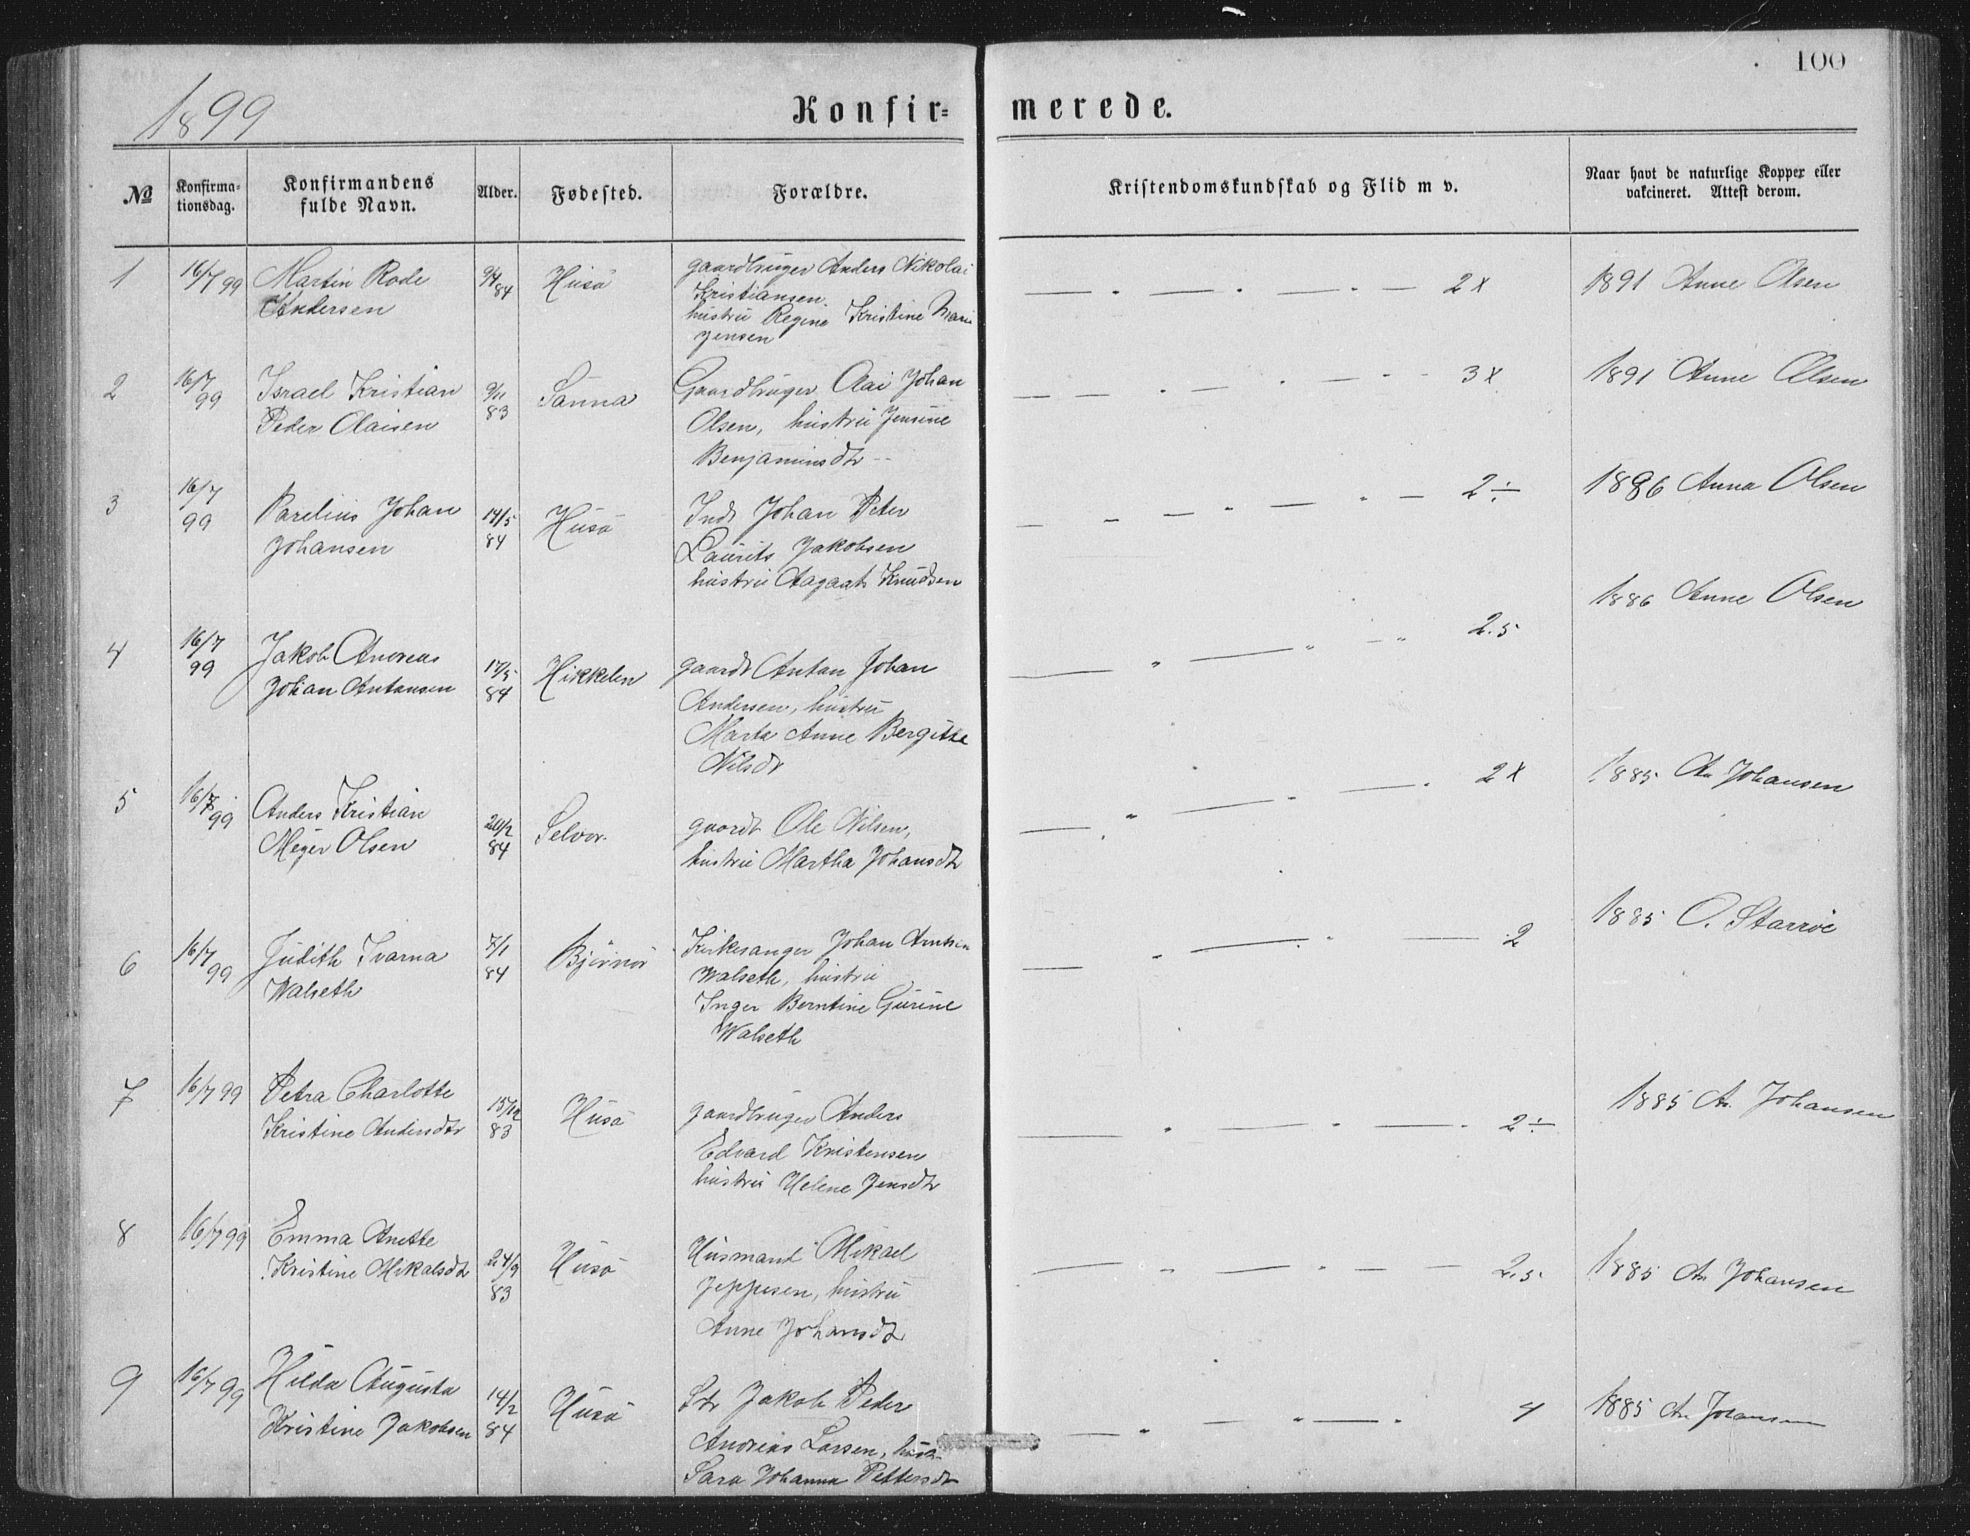 100
1899
Konfir=merede.
№ Konfirma-tionsdag. Konfirmandens fulde Navn. Alder. Fødested. Forældre. Kristendomskundskab og Flid m v. Naar havt de naturlige Kopper eller vakcineret. Attest derom.
1 16/7 99 Martin Rode 9/4 84 Husö gaardbruger Anders Nikolai
Andersen Kristiansen.
hustru Regine Kristine Marie
Jensen
2 x 1891 Anne Olsen
2 16/7 99 Israel Kristian 9/11 83 Sanna Gaardbruger Olai Johan
Peder Olaisen Olsen, hustru Jensine
Benjaminsdtr
3 x 1891 Anne Olsen
3 16/7 99 Parelius Johan 14/5 84 Husö Inds Johan Peter
Johansen Laurits Jakobsen
hustru Aagaat Knudsen
2 ÷ 1886 Anna Olsen
4 16/7 99 Jakob Andreas 17/5 84 Hikkelen gaardb Antan Johan
Johan Antansen Andersen, hustru
Marta Anne Bergitte
Nilsdr
2.5 1886 Anne Olsen
5 16/7 99 Anders Kristian 20/2 84 Selvor. gaardb Ole Nilsen,
Meyer Olsen hustru Martha Johansdtr
2 x 1885 An Johansen
6 16/7 99 Judith Ivarna 7/1 84 Bjørnör Kirkesanger Johan Arntsen
Walseth Walseth, hustru
Inger Berntine Gurine
Walseth
2 1885 O. Starröe
7 16/7 99 Petra Charlotte 15/12 83 Husö gaardbruger Anders
Kristine Andersdtr Edvard Kristensen
hustru Helene Jensdtr
2 ÷ 1885 An. Johansen
8 16/7 99 Emma Anette 24/9 83 Husö Husmand Mikael
Kristine Mikalsdtr Jeppesen, hustru
Anne Johansdtr
2.5. 1885 An Johansen
9 16/7 99 Hilda Augusta 14/2 84 Husö Str Jakob Peder
Kristine Jakobsen Andreas Larsen, hustr
Sara Johanna Pettersdtr
4 1885 An Johansen